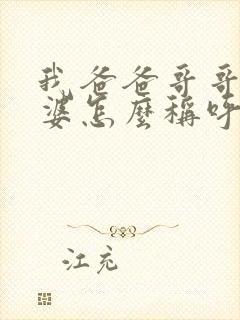 我爸爸哥哥
婆怎麼稱呼
江充